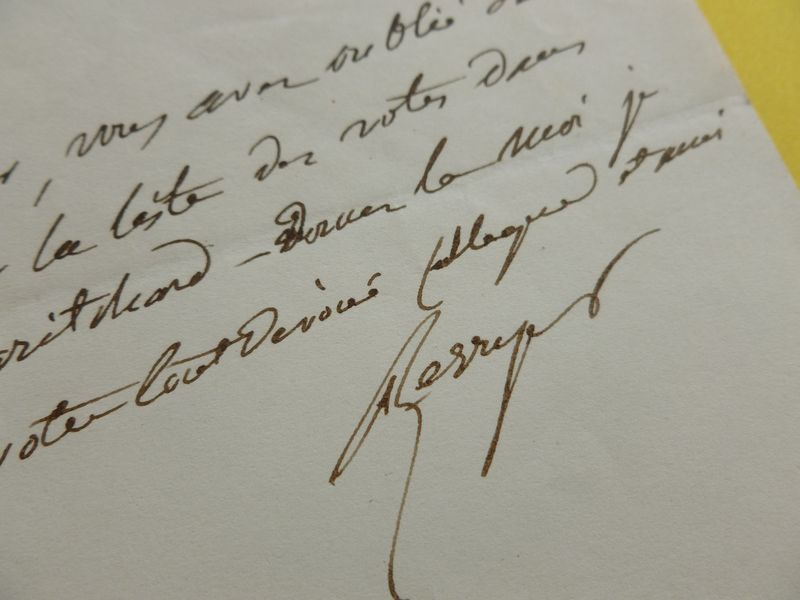 , vous avez oublié de
la liste des votes dans
pritchard – Donnez la moi je
votre tout Dévoué Collegue et ami
Berryer